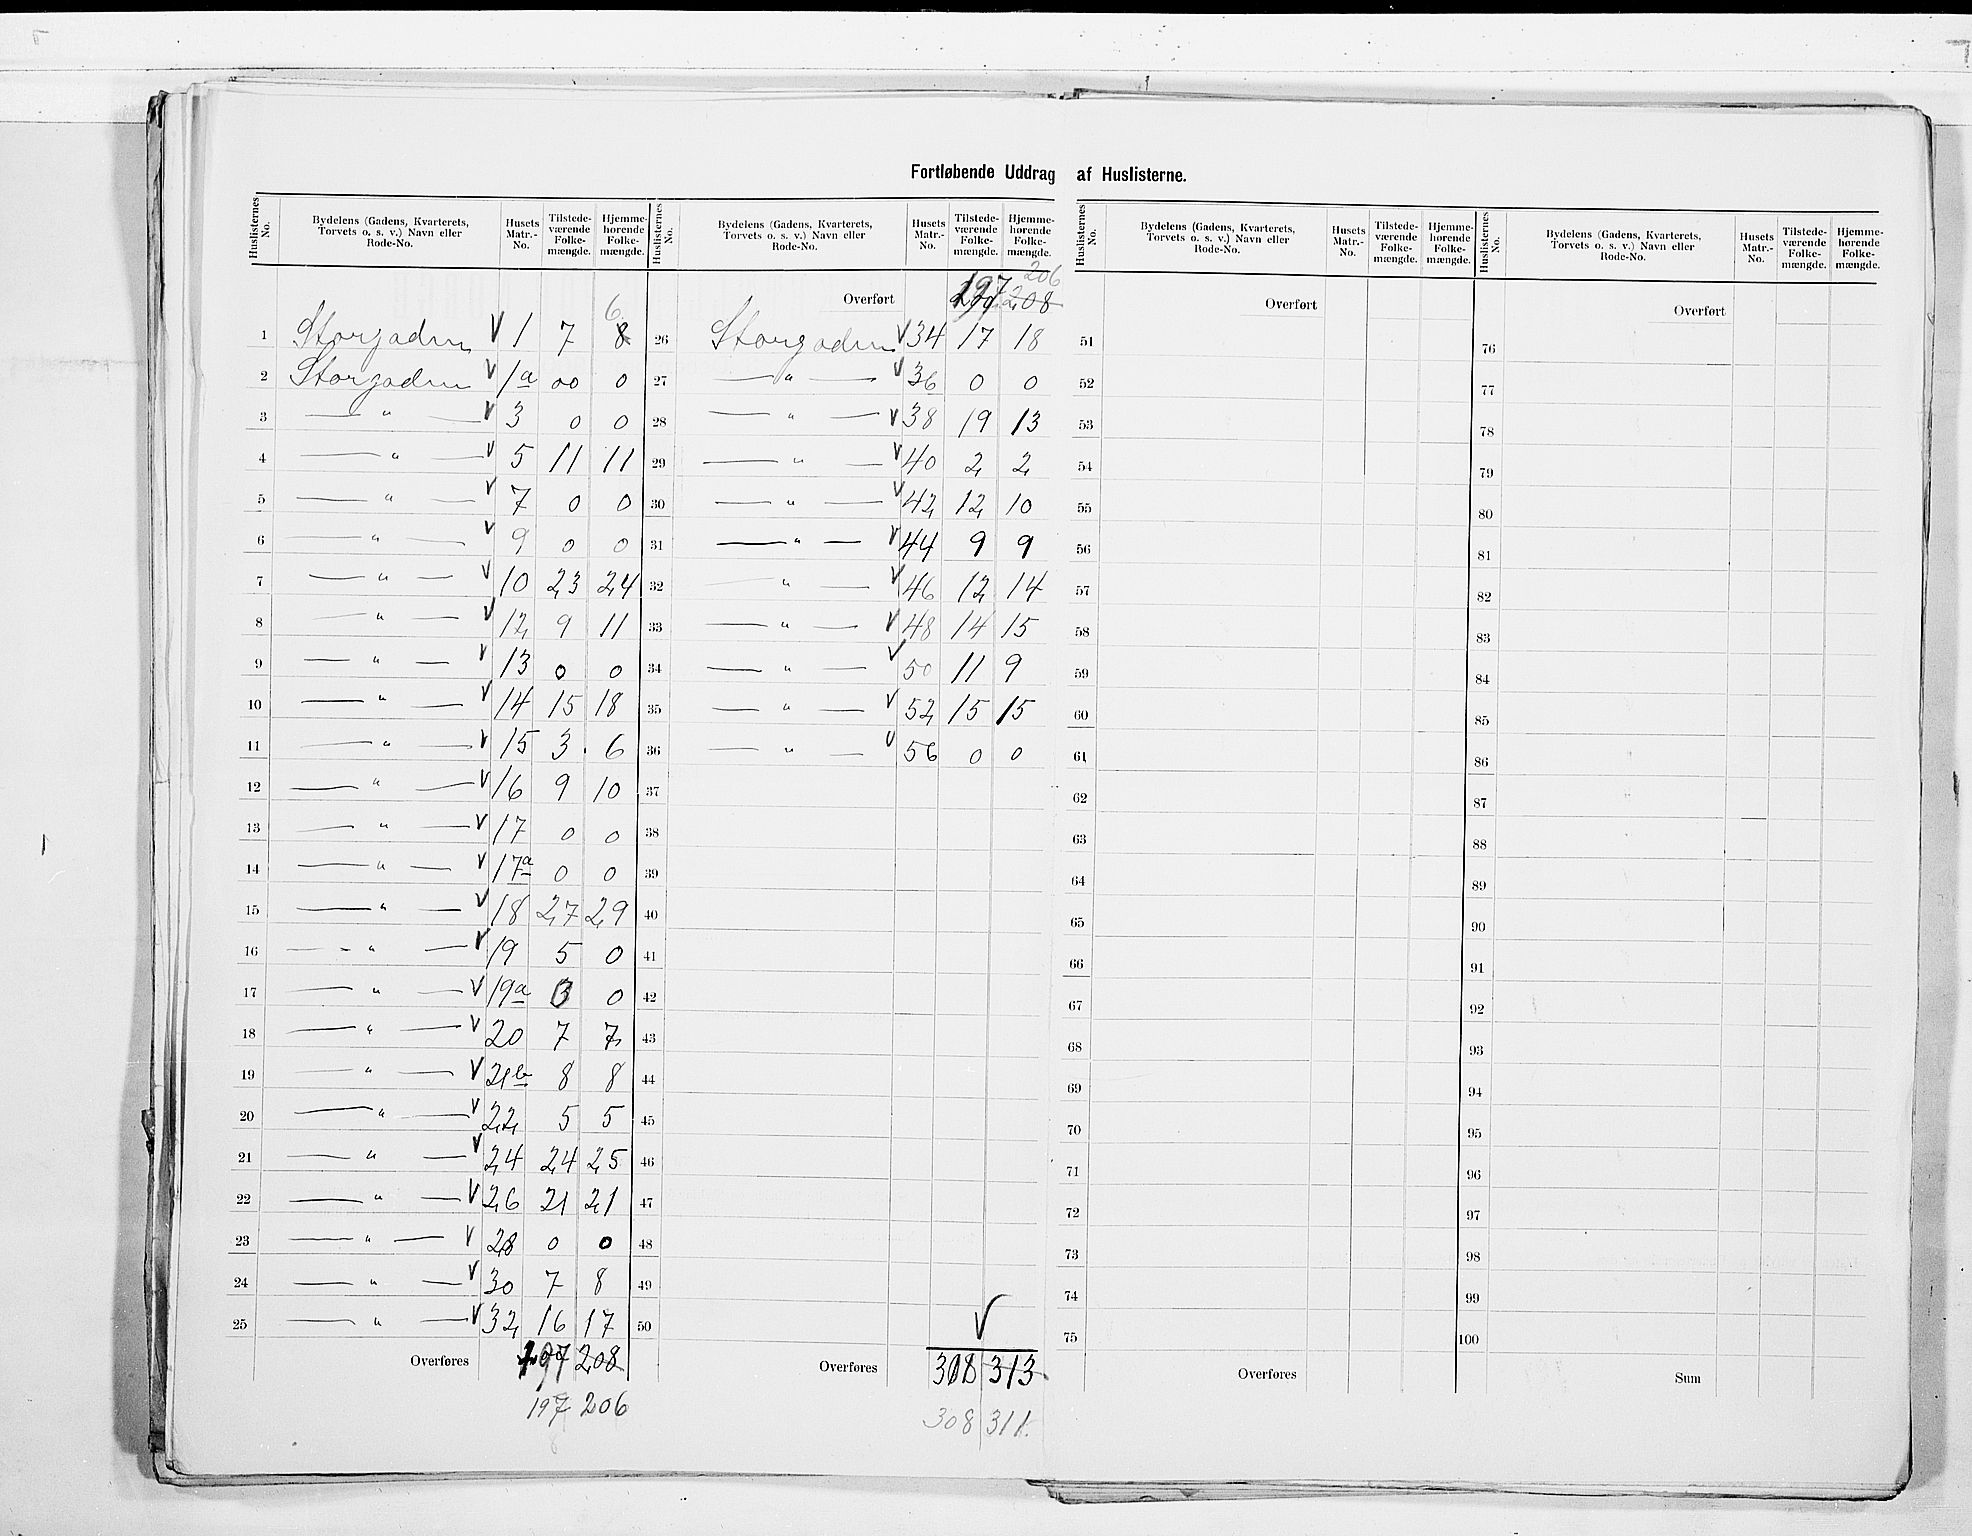 Fortløbende Uddrag af Huslisternes.
Huslisternes No. | Bydelens (Gadens, Kvarterets, Torvets o. s. v.) Navn eller Rode-No. | Husets Matr.-No. | Tilstedeværende Folkemængde. | Hjemmehørende Folkemængde.
6
1 Storgaden V 1 7 8
2 Storgaden V 1a 00 0
3 — " — V 3 0 0
4 — " — V 5 11 11
5 — " — V 7 0 0
6 — " — V 9 0 0
7 — " — V 10 23 24
8 — " — V 12 9 11
9 — " — V 13 0 0
10 — " — V 14 15 18
11 — " — V 15 3 6
12 — " — V 16 9 10
13 — " — V 17 0 0
14 — " — V 17a 0 0
15 — " — V 18 27 29
16 — " — V 19 5 0
17 — " — V 19a 0
18 — " — V 20 7 7
19 — " — V 21b 8 8
20 — " — V 22 5 5
21 — " — V 24 24 25
22 — " — V 26 21 21
23 — " — V 28 0 0
24 — " — V 30 7 8
25 — " — V 32 16 17
Overføres 197 208
197 206
Huslisternes No. | Bydelens (Gadens, Kvarterets, Torvets o. s. v.) Navn eller Rode-No. | Husets Matr.-No. | Tilstedeværende Folkemængde. | Hjemmehørende Folkemængde.
206
Overført 197 208
26 Storgaden V 34 17 18
27 — " — V 36 0 0
28 — " — V 38 19 13
29 — " — V 40 2 2
30 — " — V 42 12 10
31 — " — V 44 9 9
32 — " — V 46 12 14
33 — " — V 48 14 15
34 — " — V 50 11 9
35 — " — V 52 15 15
36 — " — V 56 0 0
37
38
39
40
41
42
43
44
45
46
47
48
49
50
V
Overføres 308 313
308 311
Huslisternes No. | Bydelens (Gadens, Kvarterets, Torvets o. s. v.) Navn eller Rode-No. | Husets Matr.-No. | Tilstedeværende Folkemængde. | Hjemmehørende Folkemængde.
Overført
51
52
53
54
55
56
57
58
59
60
61
62
63
64
65
66
67
68
69
70
71
72
73
74
75
Overføres
Huslisternes No. | Bydelens (Gadens, Kvarterets, Torvets o. s. v.) Navn eller Rode-No. | Husets Matr.-No. | Tilstedeværende Folkemængde. | Hjemmehørende Folkemængde.
Overført
76
77
78
79
80
81
82
83
84
85
86
87
88
89
90
91
92
93
94
95
96
97
98
99
100
Sum